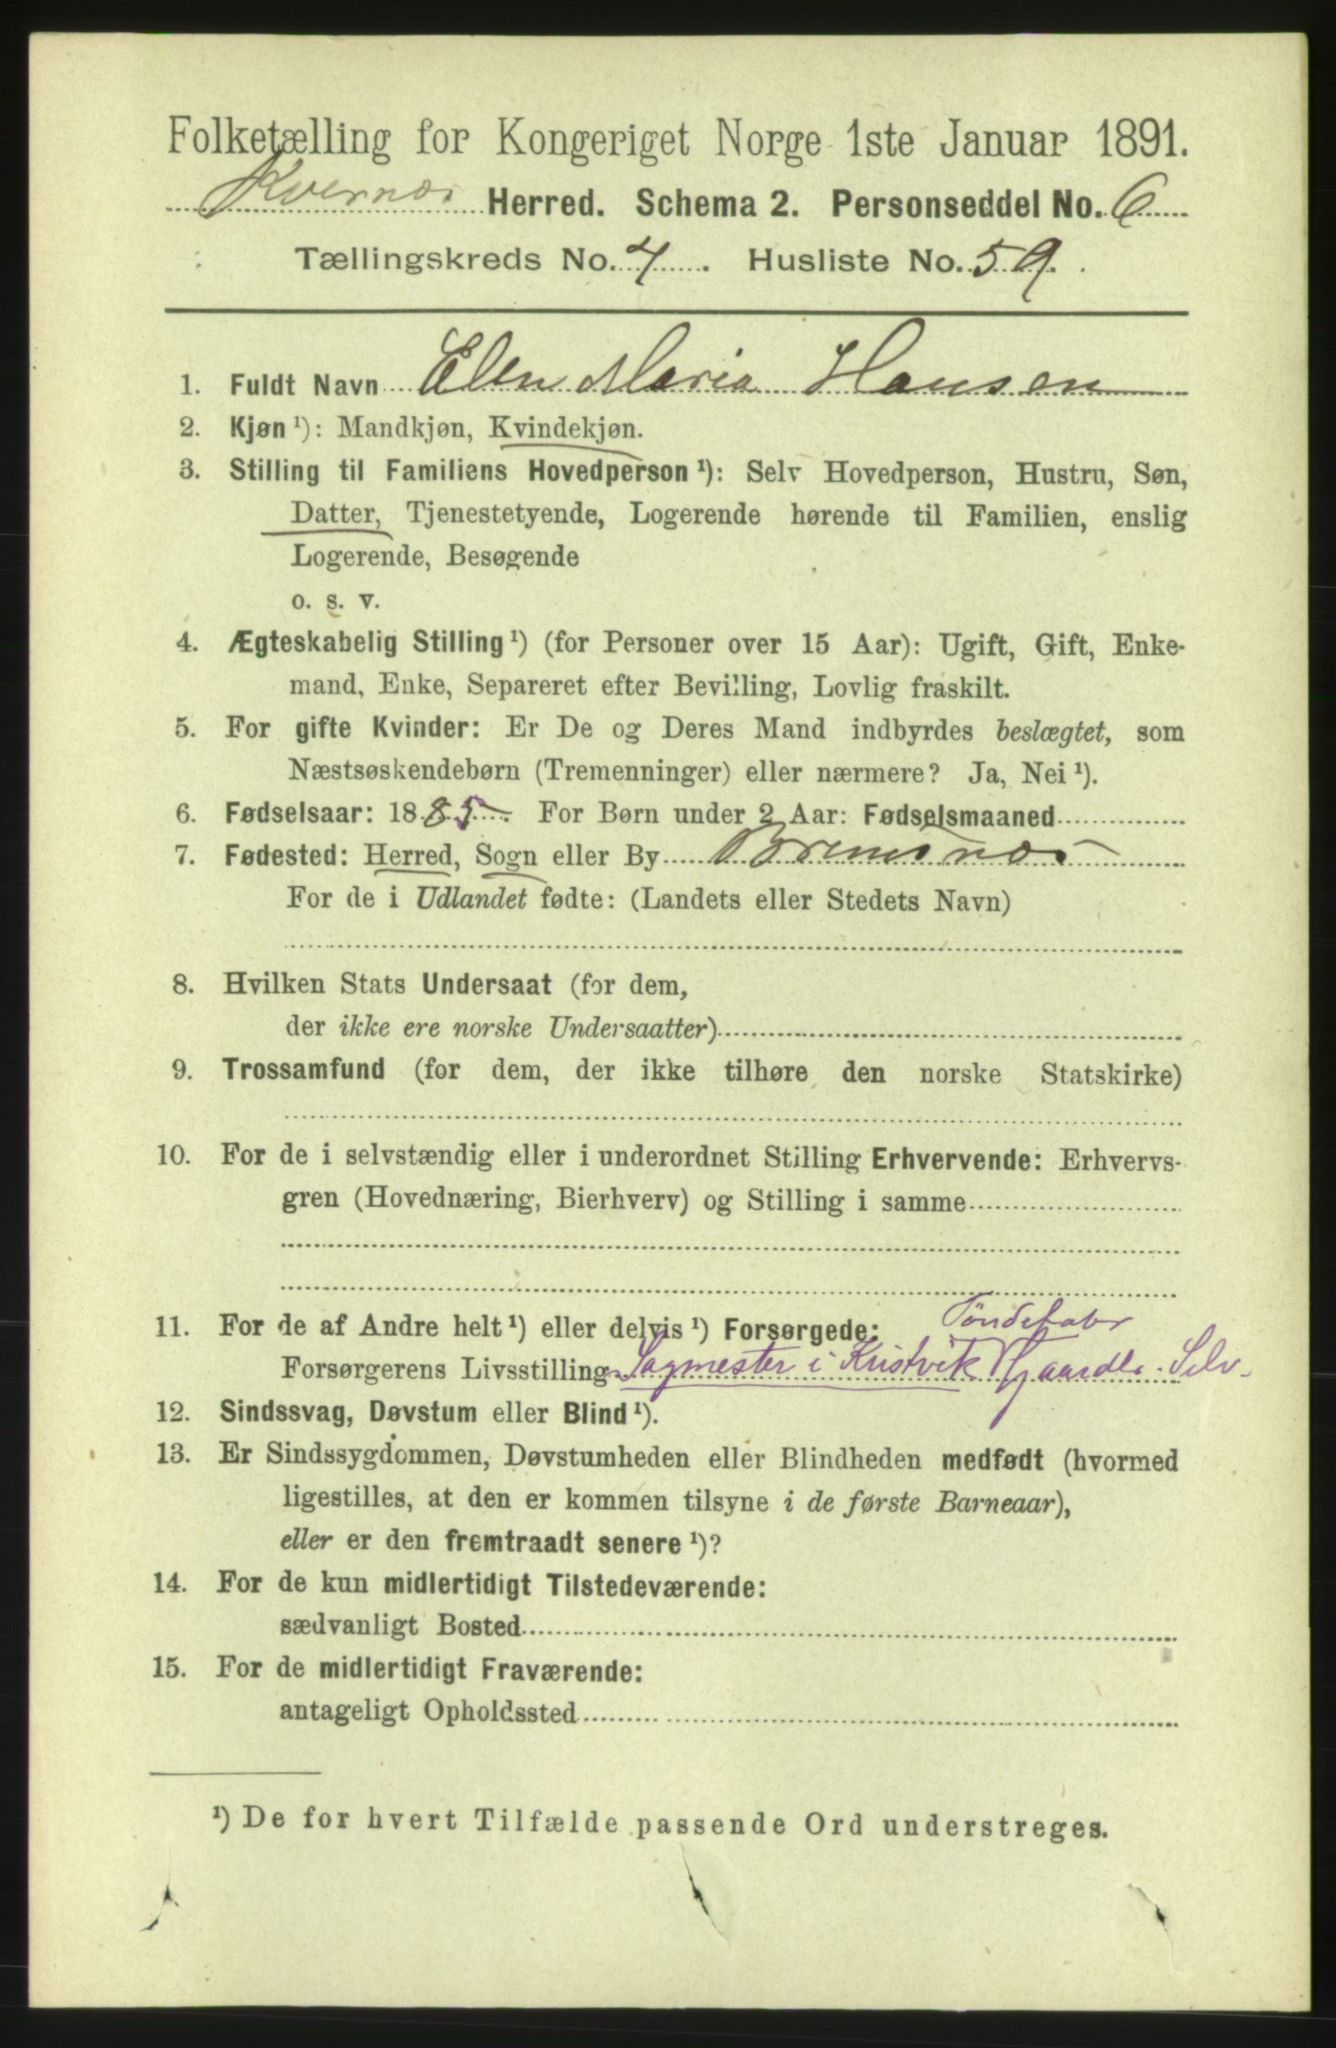 Folketælling for Kongeriget Norge 1ste Januar 1891.
Kvernes Herred. Schema 2. Personseddel No. 6
Tællingskreds No. 4. Husliste No. 59.
1. Fuldt Navn Elen Maria Hansen
2. Kjøn¹): Mandkjøn, Kvindekjøn.
3. Stilling til Familiens Hovedperson¹): Selv Hovedperson, Hustru, Søn,
Datter, Tjenestetyende, Logerende hørende til Familien, enslig
Logerende, Besøgende
o. s. v.
4. Ægteskabelig Stilling¹) (for Personer over 15 Aar): Ugift, Gift, Enke-
mand, Enke, Separeret efter Bevilling, Lovlig fraskilt.
5. For gifte Kvinder: Er De og Deres Mand indbyrdes beslægtet, som
Næstsøskendebørn (Tremenninger) eller nærmere? Ja, Nei¹).
6. Fødselsaar: 1885. For Børn under 2 Aar: Fødselsmaaned
7. Fødested: Herred, Sogn eller By Bremsnes
For de i Udlandet fødte: (Landets eller Stedets Navn)
8. Hvilken Stats Undersaat (for dem,
der ikke ere norske Undersaatter)
9. Trossamfund (for dem, der ikke tilhøre den norske Statskirke)
10. For de i selvstændig eller i underordnet Stilling Erhvervende: Erhvervs-
gren (Hovednæring, Bierhverv) og Stilling i samme
11. For de af Andre helt¹) eller delvis¹) Forsørgede: Töndefabr
Forsørgerens Livsstilling Sagmester i Kristvik Gaardbr. Selv.
12. Sindssvag, Døvstum eller Blind¹).
13. Er Sindssygdommen, Døvstumheden eller Blindheden medfødt (hvormed
ligestilles, at den er kommen tilsyne i de første Barneaar),
eller er den fremtraadt senere¹)?
14. For de kun midlertidigt Tilstedeværende:
sædvanligt Bosted
15. For de midlertidigt Fraværende:
antageligt Opholdssted
¹) De for hvert Tilfælde passende Ord understreges.